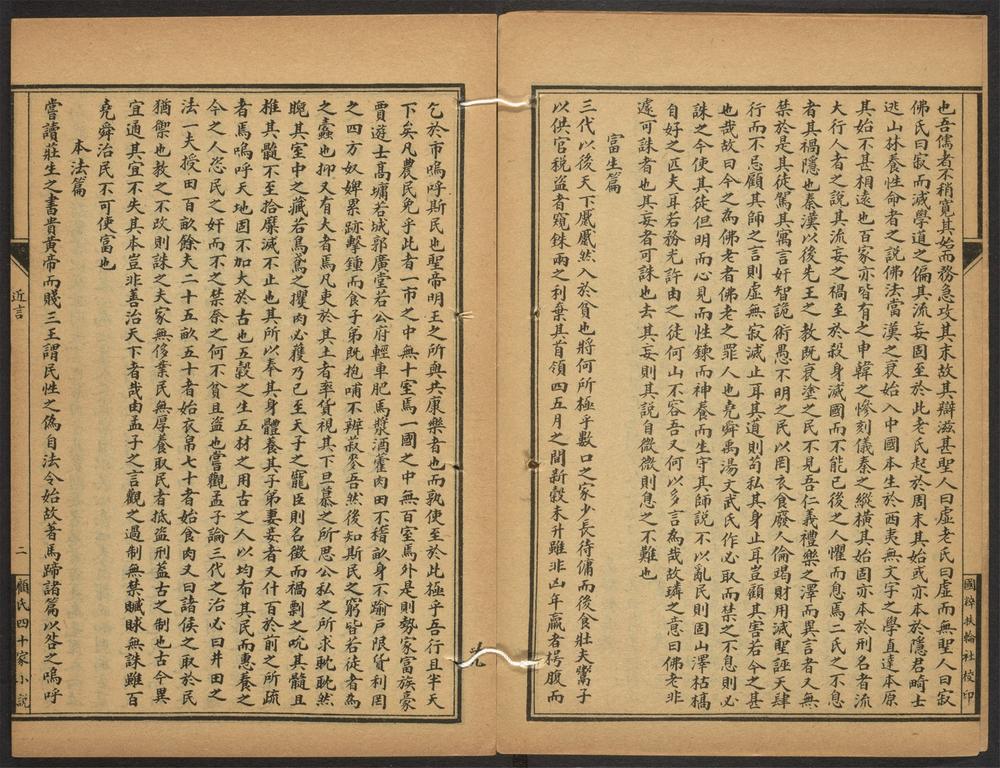 也吾儒者不稍寬其始而務急攻其末故其辯滋甚聖人曰虛老氏曰虛而無聖人曰寂
佛氏曰寂而滅學道之偏其流妄固至於此老氏起於周末其始或亦本於隱君畸士
逃山林養性命者之說佛法當漢之衰始入中國本生於西夷無文字之學直達本原
其始不甚相遠也百家亦皆有之申韓之慘刻儀秦之縱橫其始固亦本於刑名者流
大行人者之說其流妄之禍至於殺身滅國而不能已後之人懼而息焉二氏之不息
者其禍隱也秦漢以後先王之教既衰塗之民不見吾仁義禮樂之澤而異言者又無
禁於是其徒駕其寓言奸智詭術愚不明之民以罔衣食廢人倫竭財用滅聖誣天肆
行而不忌顧其師之言則虛無寂滅止耳其道則苟私其身止耳豈顧其害若今之甚
也哉故曰今之為佛老者佛老之罪人也堯舜禹湯文武氏作必取而禁之不息則必
誅之今使其徒但明而心見而性鍊而神養而生守其師說不以亂民則固山澤枯槁
自好之匹夫耳若務光許由之徒何山不容吾又何以多言為哉故璘之意曰佛老非
遽可誅者也其妄者可誅也去其妄則其說自微微則息之不難也
富生篇
三代以後天下慼慼然入於貧也將何所極乎數口之家少長待傭而後食壯夫鬻子
以供官稅盜者窺銖兩之利棄其首領四五月之間新穀未升雖非凶年羸者枵腹而
國粹扶輪社校印
乞於市嗚呼斯民也聖帝明王之所與共康樂者也而孰使至於此極乎吾行且半天
下矣凡農民免乎此者一市之中無十室焉一國之中無百室焉外是則勢家富族豪
賈遊士高墉若城郭廣堂若公府輕車肥馬漿酒藿肉田不稽畝身不踰戶限貨利罔
之四方奴婢累跡擊鍾而食子弟既抱哺不辨菽麥吾然後知斯民之窮皆若徒者為
之蠹也抑又有大者焉凡吏於其土者率貨視其下旦暮之所思公私之所求耽耽然
睨其室中之藏若烏鳶之攫肉必獲乃已至天子之寵臣則名徵而禍剽之吮其髓且
椎其髓不至拾糜滅不止也其所以奉其身體養其子弟妻妾者又什百於前之所疏
者焉嗚呼天地固不加大於古也五穀之生五材之用古之人以均布其民而惠養之
今之人恣民之奸而不之禁柰之何不貧且盜也嘗觀孟子論三代之治必曰井田之
法一夫授田百畝餘夫二十五畝五十者始衣帛七十者始食肉又曰諸侯之取於民
猶禦也教之不改則誅之夫家無侈業民無厚養取民者抵盜刑蓋古之制也古今異
宜通其宜不失其本豈非善治天下者哉由孟子之言觀之過制無禁贓賕無誅雖百
堯舜治民不可使富也
本法篇
嘗讀莊生之書貴黃帝而賤三王謂民性之偽自法令始故著馬蹄諸篇以咎之嗚呼
近言
二
顧氏四十家小說